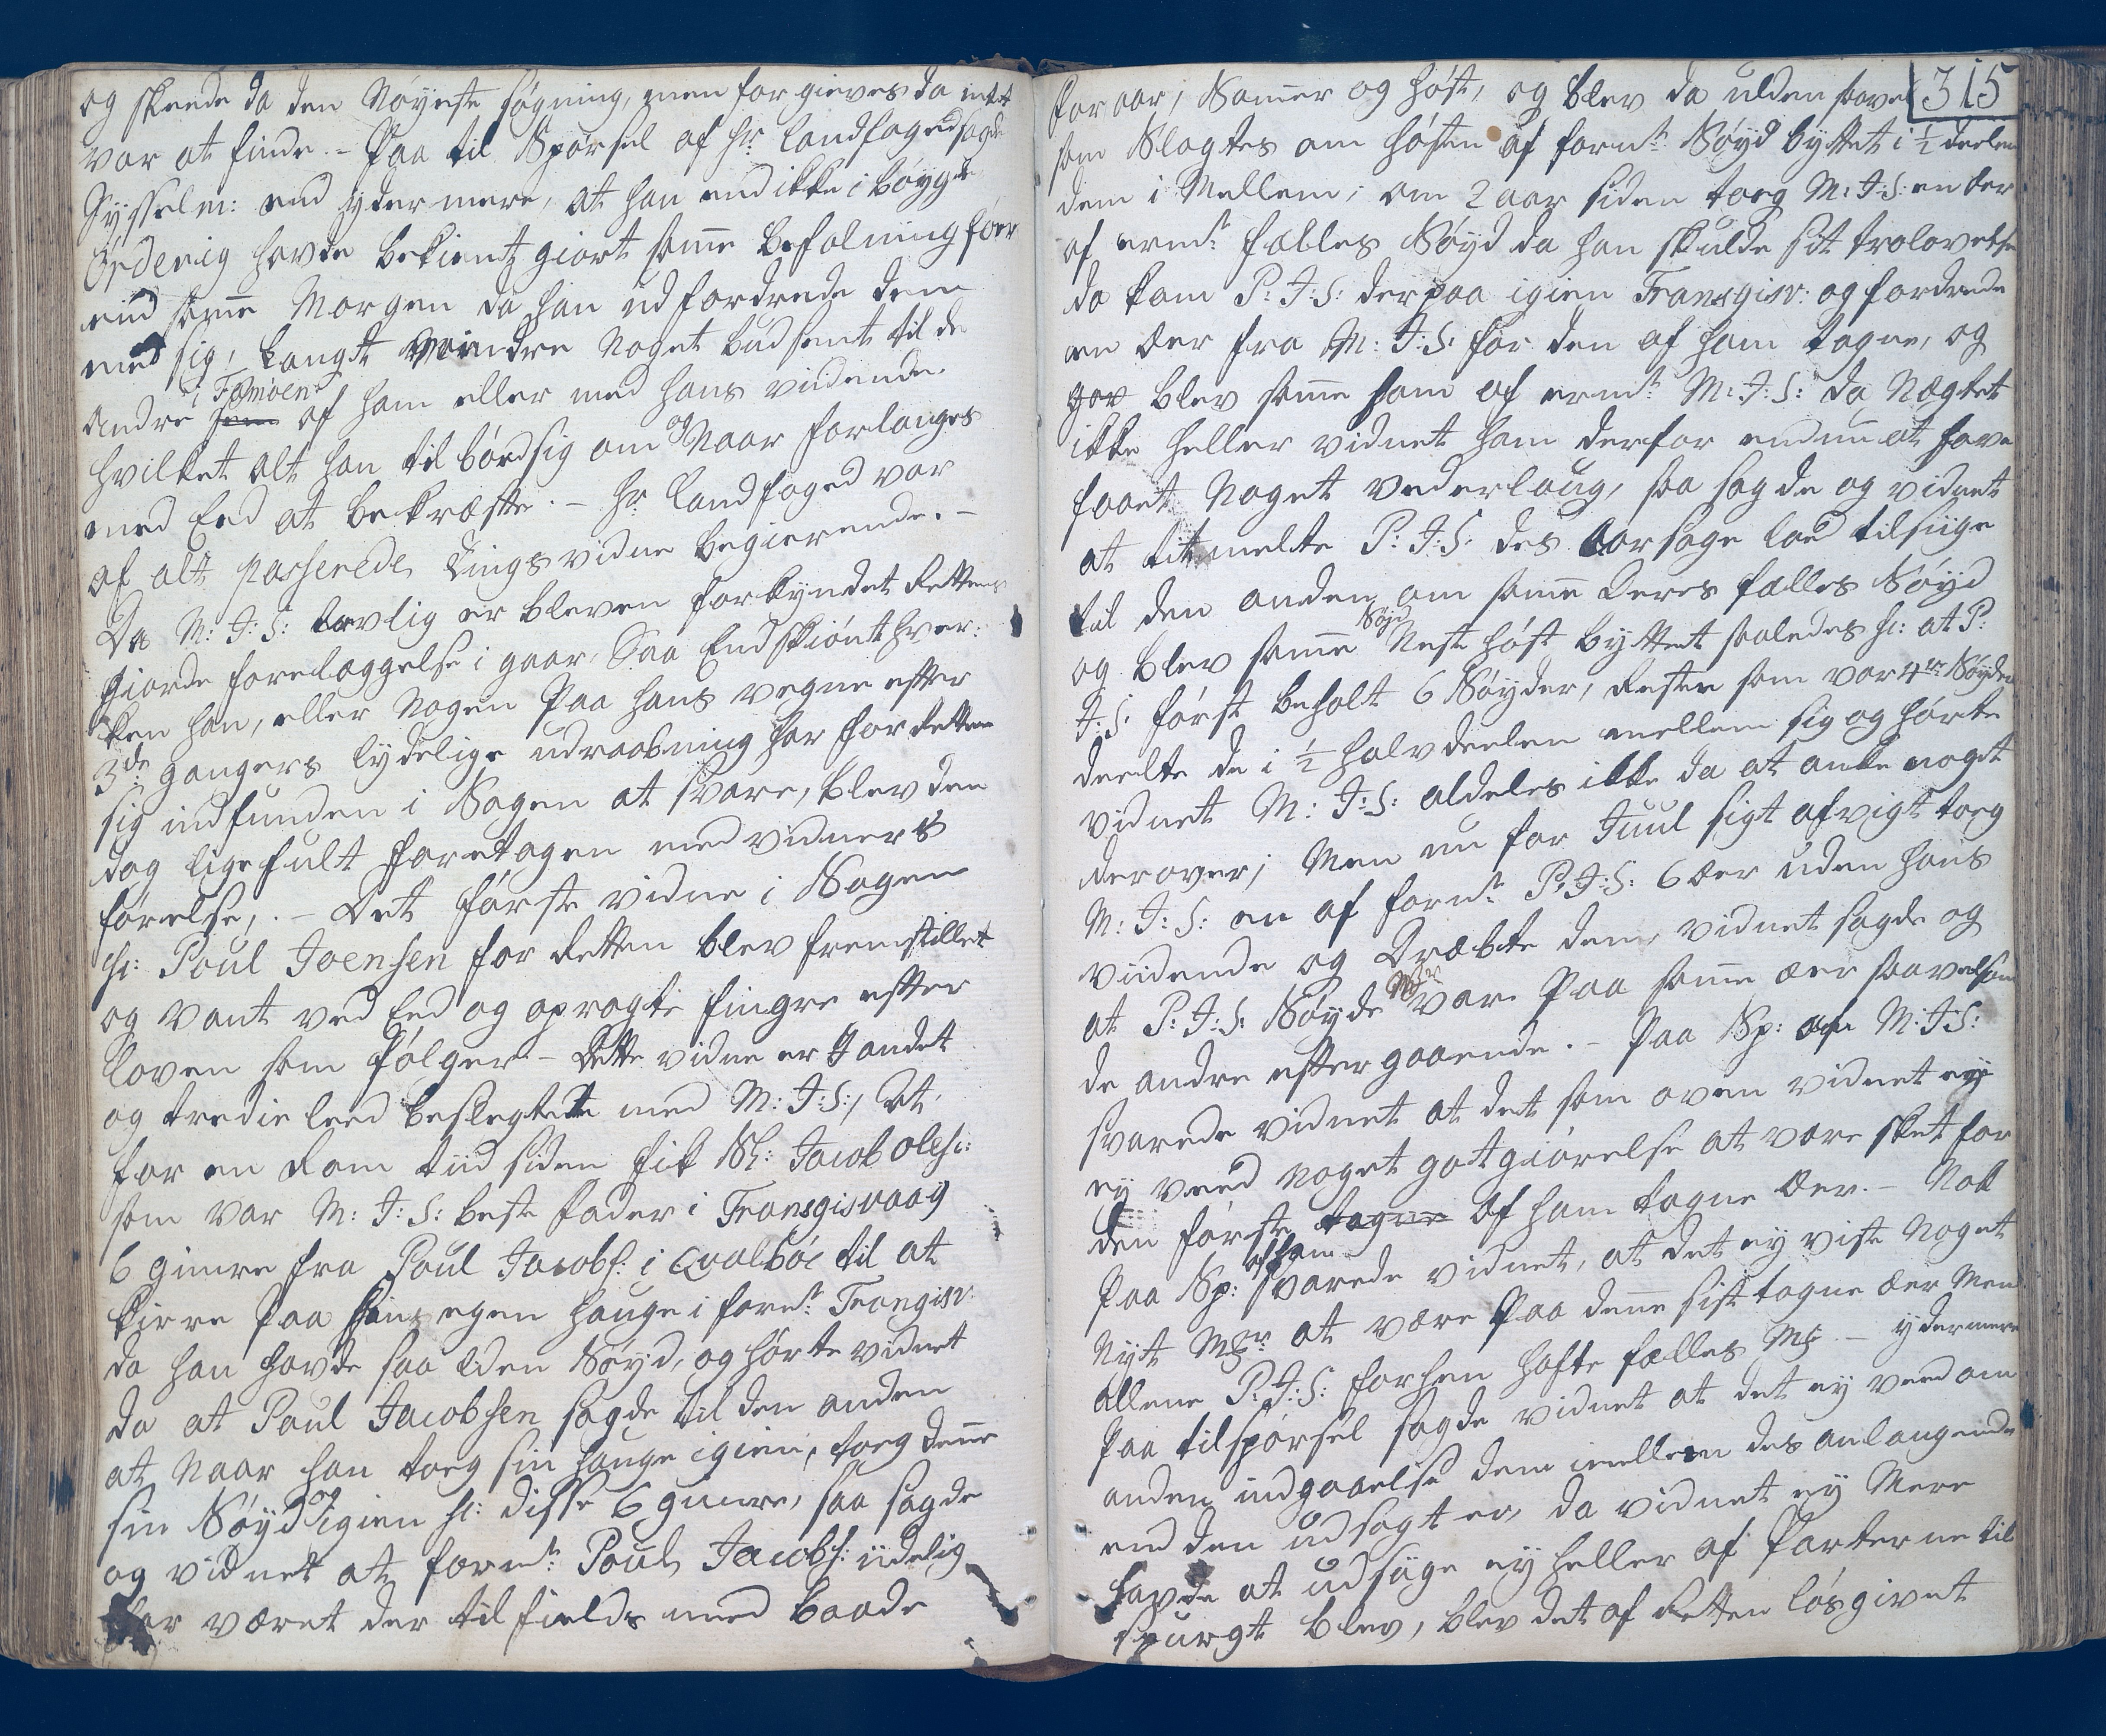 og skeede da den Nøyeste søgning, men forgieves da intet
var at finde. – Paa til Spørsel af Hr: Landfoged sagde
Sysselm: end ydermere, at han end ikke i bøygde
Ørderig havde bekient giort samme befalning før
end samme Morgen da han udfordrede dem
med sig, Langt mindre Noget bud sent til de
i Famøen
andre af ham eller med hans vidende.
hvilket alt han tilbød sig om og Naar forlanges
med Eed at bekræfte. – Hr: Landfoged var
af alt passerede Tings vidne begierende. –
Da M: J: S: lovlig er bleven forkyndet Rettens
giorde forelæggelse i gaar, Saa Endskiønt hver-
ken han, eller Nogen Paa hans vegne efter
3de gangers lydelige udraabning har for Retten
sig indfunden i Sagen at svare, blev den
dog ligefult foretagen med vidners
førelse, . – Det første vidne i Sagen
sc: Poul Joensen for Retten blev fremstillet
og vant ved Eed og opragte fingre efter
Loven som følger. – Dette vidne er J andet
og tredie leed beslegtet med M: J: S:, At
for en Rom tiid siden fik Sl: Jacob Oless:
som var M: J: S: beste fader i Fransgisvaag
6 gimre fra Poul Jacobs: i Qvalbøe til at
kirre Paa hans egen hauge i formt: Frangisv:
da han havde saa liden Søyd, og hørte vidnet
da at Poul Jacobsen sagde til den anden
at Naar han toeg sin hauge igien, toeg denne
sin Søyd og igien sc: disse 6 gimre, saa sagde
og vidnet at formt: Poul Jacobs: iidelig
har været der til fields med baade
315
for aar, Somer og høst, og blev da ulden saavel
som Slagtes om høsten af formt: Søyd byttet i ½ deelen
dem i Mellem; om 2 aar siden toeg M: J: S: en Der
af ermt: fælles Søyd da han skulde sit trolovelse
da kom P: J: S: derpaa igien Fransgisv: og fordrede
en Der fra M: J: S: for den af ham tagne, og
blev samme ham af ermt: M: J: S: da Nægtet
ikke heller vidnet ham derfor endnu at have
faaet Noget vederlaug, saa sagde og vidnet
at titmelte P: J: S: des Aarsage lod tilsiige
til den anden om samme Deres fælles Søyd
og blev samme Søyd Nest høst byttet saaledes sc: at P:
J: S: først beholt 6 Søyder, Resten som var 4re Søyder
deelte de i ½ halvdeelen mellem sig og hørte
vidnet M: J: S: aldeles ikke da at anke noget
derover; Men nu for Juul sist afvigt toeg
M: J: S: en af formt: P: J: S: 6 Der uden hans
vidende og Dræbte dem, vidnet sagde og
at P: J: S: Søyde Mr var Paa samme Der saavelsom
de andre eftergaaende. – Paa Sp: af M: J: S:
svarede vidnet at det som oven vidnet ey
ey veed Noget gotgiørelse at være sket for
den første tagne af ham tagne Der. – Nok
Paa Sp: af ham svarede vidnet, at det ey viste Noget
Nyt Mr at være Paa denne sist tagne Der Men
allene P: J: S: forhen hafte fælles Mr – ydermere
Paa tilspørsel sagde vidnet at det ey veed om
anden indgaaelse dem imellem des anlangende
end den udsagt er, da vidnet ey Mere
havde at udsiige ey heller af Parterne til
spurgt blev, blev det af Retten løsgivet